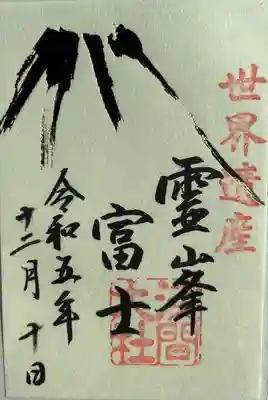 世界遺産
霊山峯
富士
浅間
大社
令和五年
十二月十日